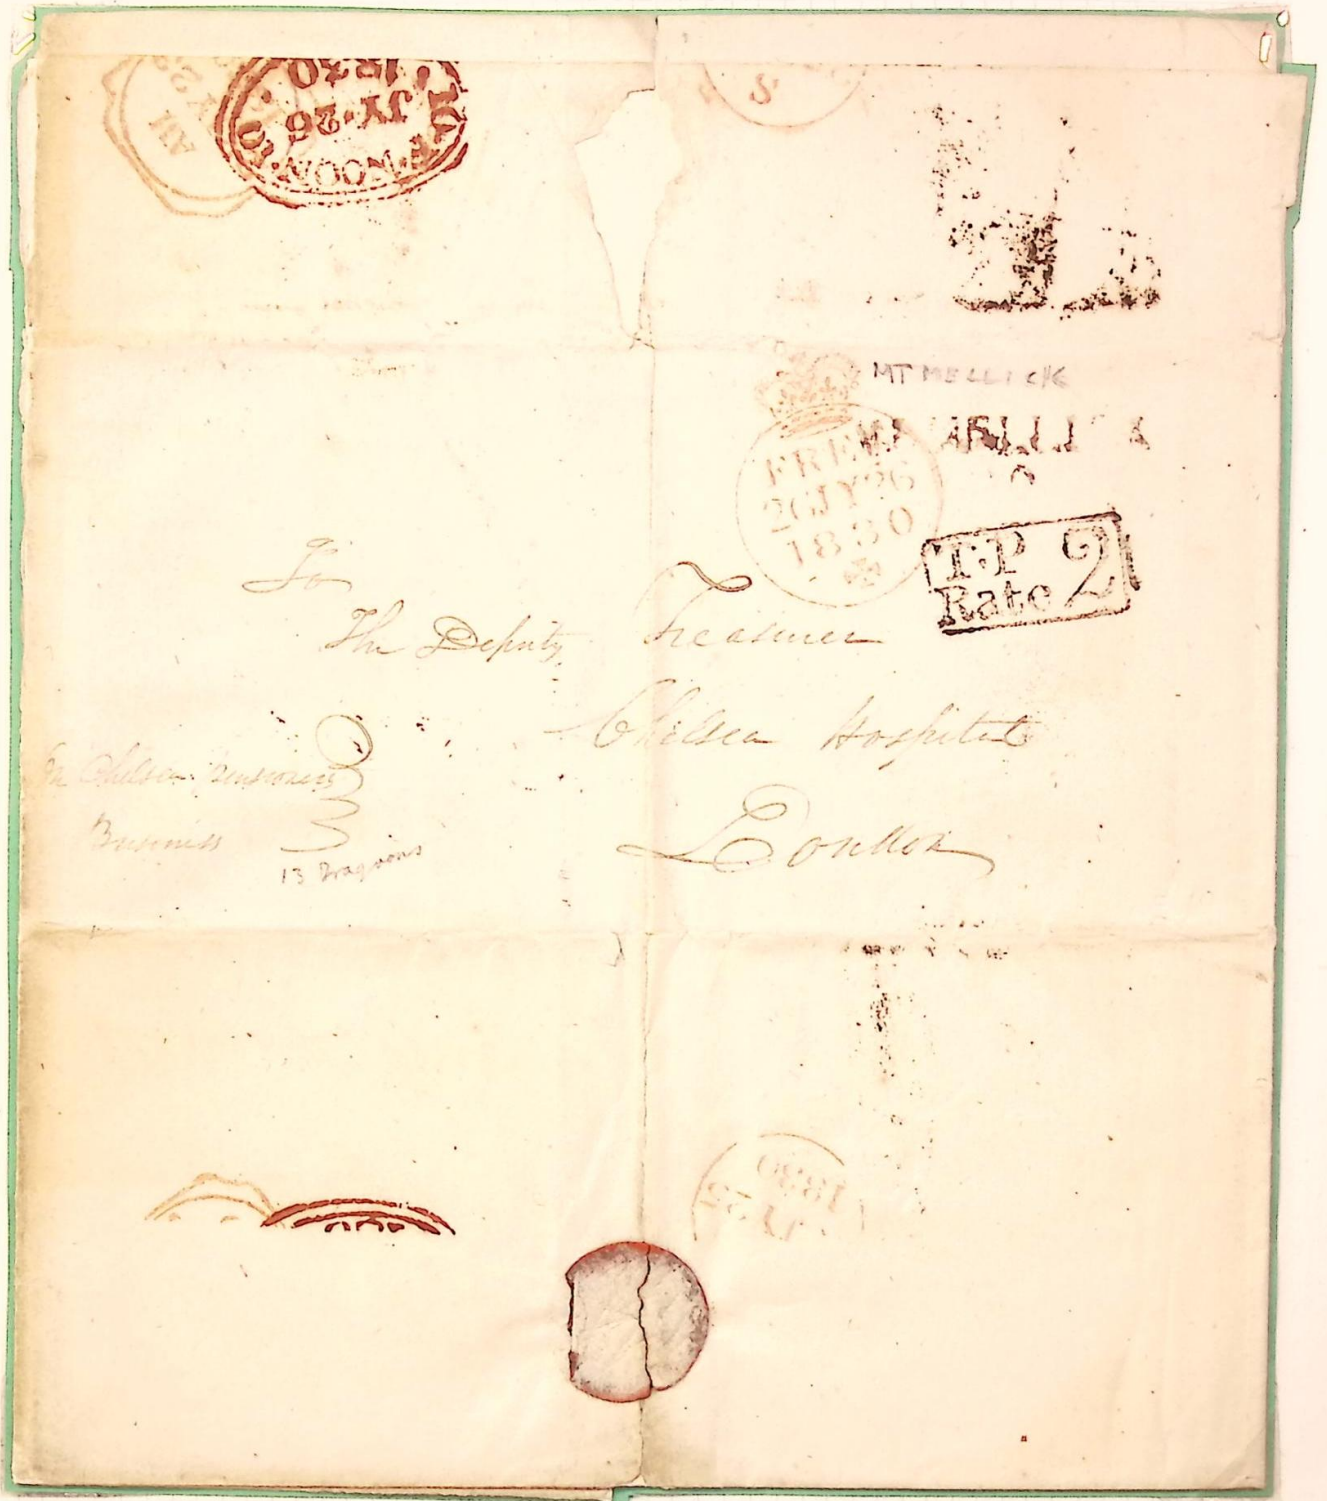 10·F·NOON·10
JY·26
1830
AH
8
MT MELLICK
FREE
26JY26
1830
T.P
Rate 2
To
The Deputy Treasurer
Chelsea Hospital
London
On Chelsea Pensioners
Business
13 Dragoons
1830